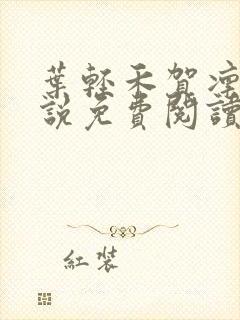 葉輕禾賀凜
說免費閱讀
紅裝